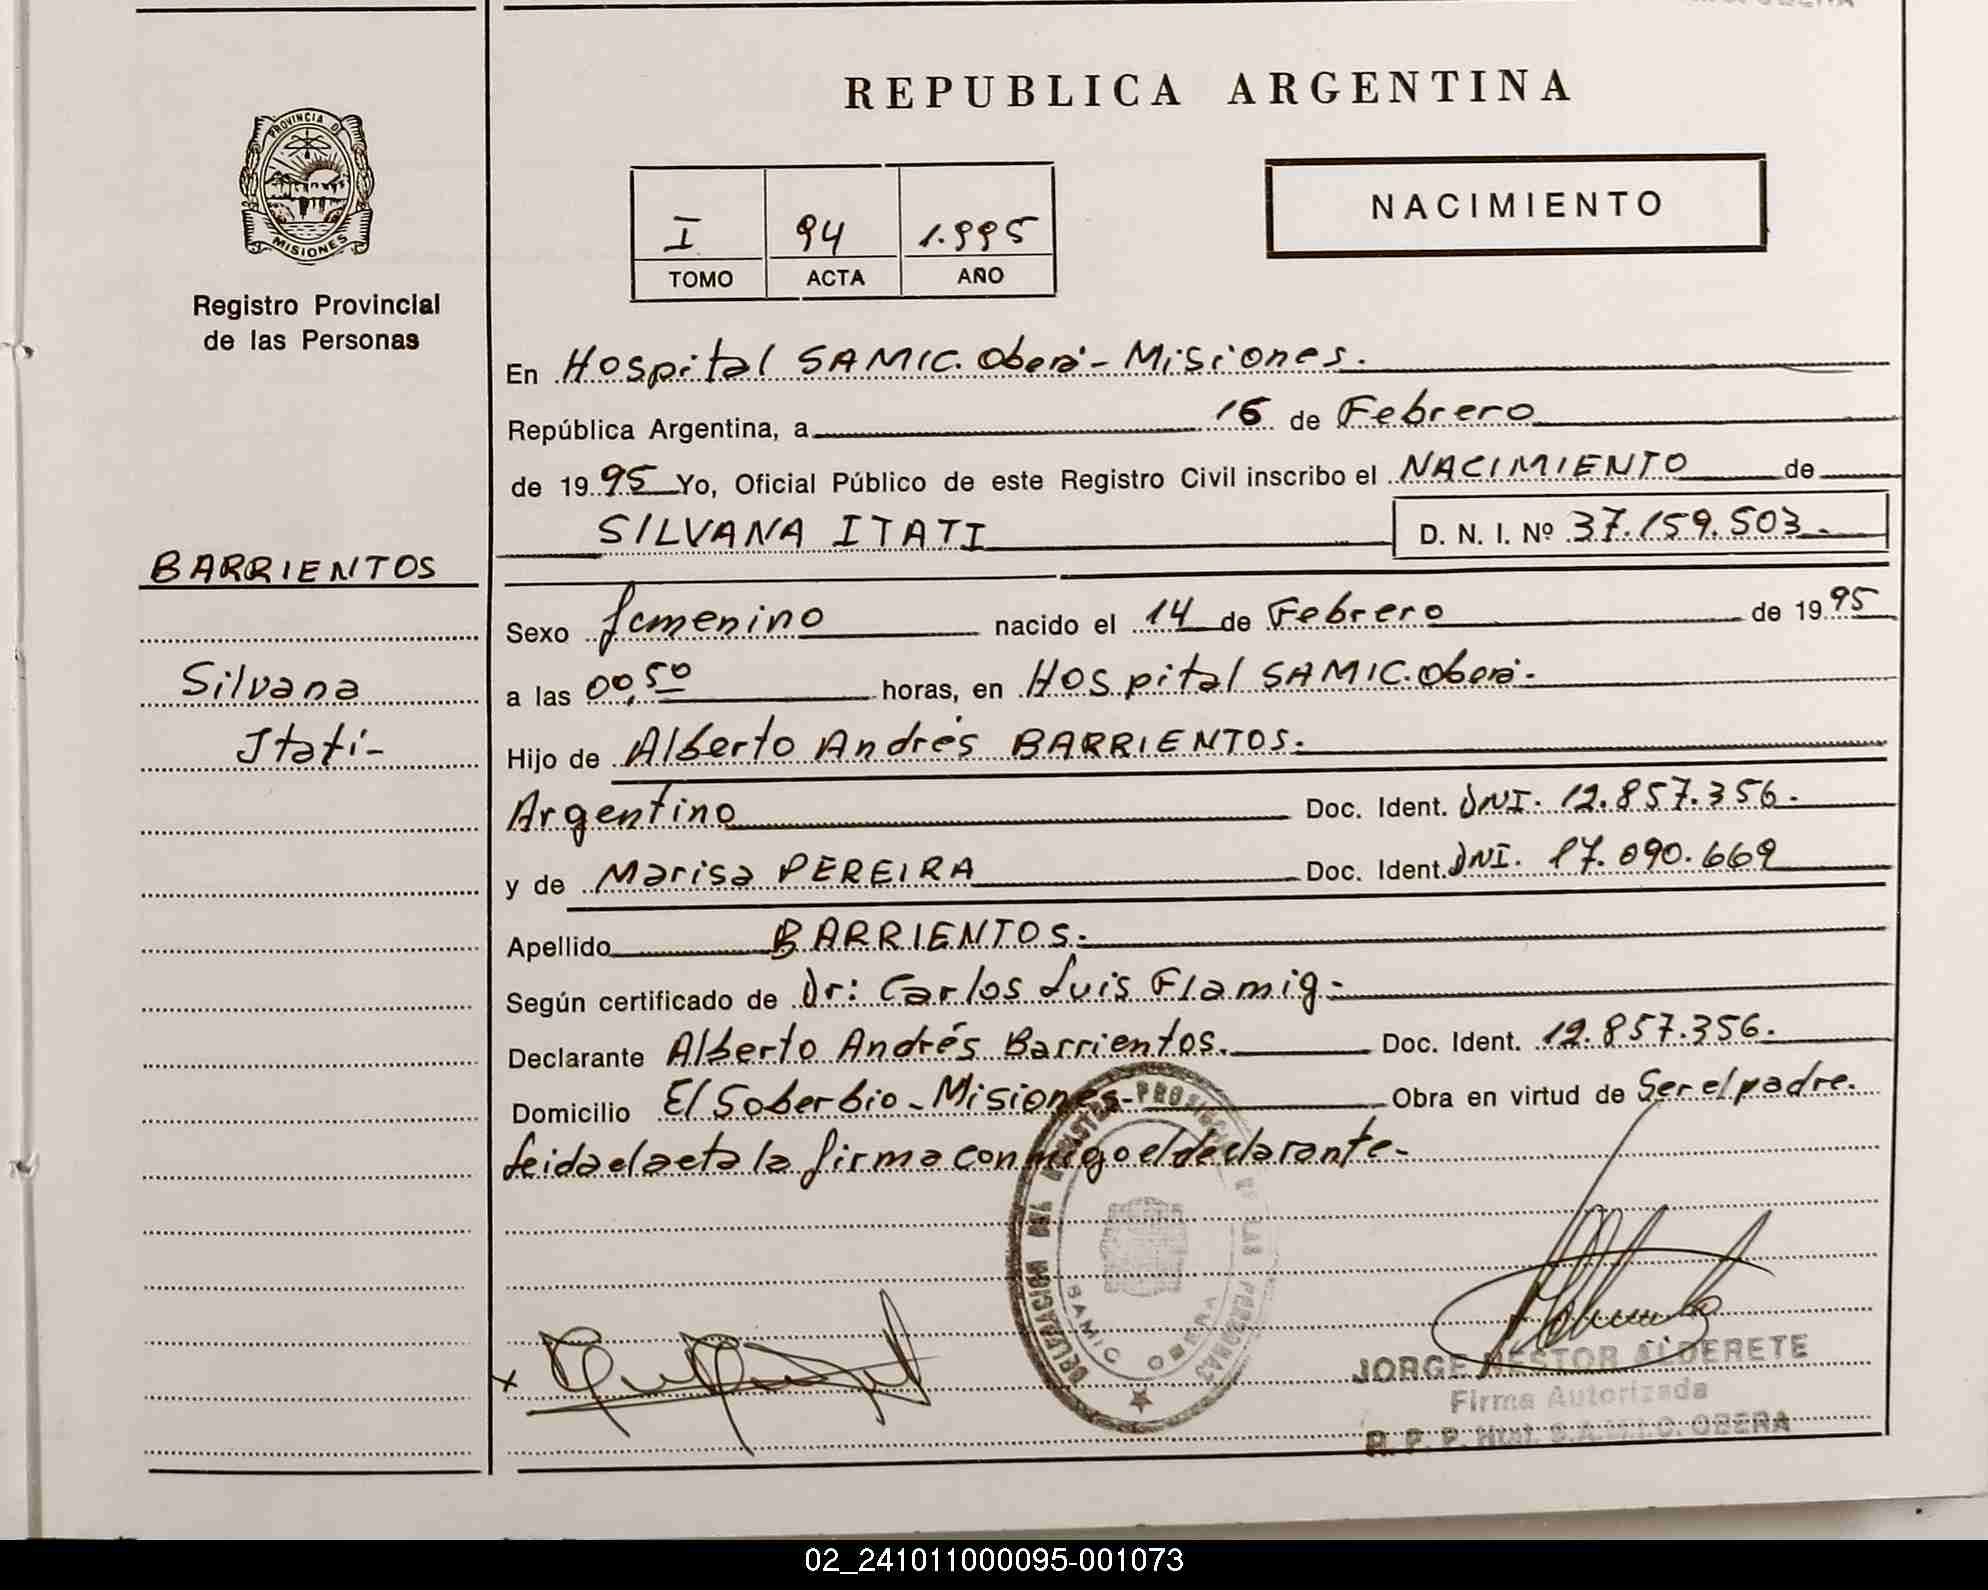 REPUBLICA ARGENTINA
PROVINCIA DE
MISIONES
Registro Provincial
de las Personas
I 94 1.995
TOMO ACTA AÑO
NACIMIENTO
En Hospital SAMIC. Oberá - Misiones.
República Argentina, a 16 de Febrero
de 1995 Yo, Oficial Público de este Registro Civil inscribo el NACIMIENTO de
SILVANA ITATI D. N. I. Nº 37.159.503.-
BARRIENTOS
Silvana
Itatí-
Sexo femenino nacido el 14 de Febrero de 1995
a las 00,50 horas, en Hospital SAMIC. Oberá.
Hijo de Alberto Andrés BARRIENTOS.
Argentino Doc. Ident. DNI. 12.857.356.
y de Marisa PEREIRA Doc. Ident. DNI. 17.090.669
Apellido BARRIENTOS.
Según certificado de Dr: Carlos Luis Flamig.
Declarante Alberto Andrés Barrientos. Doc. Ident. 12.857.356.
Domicilio El Soberbio - Misiones- Obra en virtud de Ser el padre.
Leida el acta la firma conmigo el declarante.
DELEGACION DEL REGISTRO PROVINCIAL DE LAS PERSONAS
SAMIC OBERA
JORGE NESTOR ALDERETE
Firma Autorizada
R. P. P. Htal. S.A.M.I.C. OBERA
02_241011000095-001073